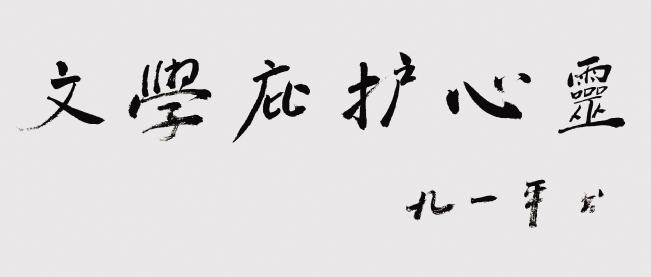 文學庇护心靈
九一平